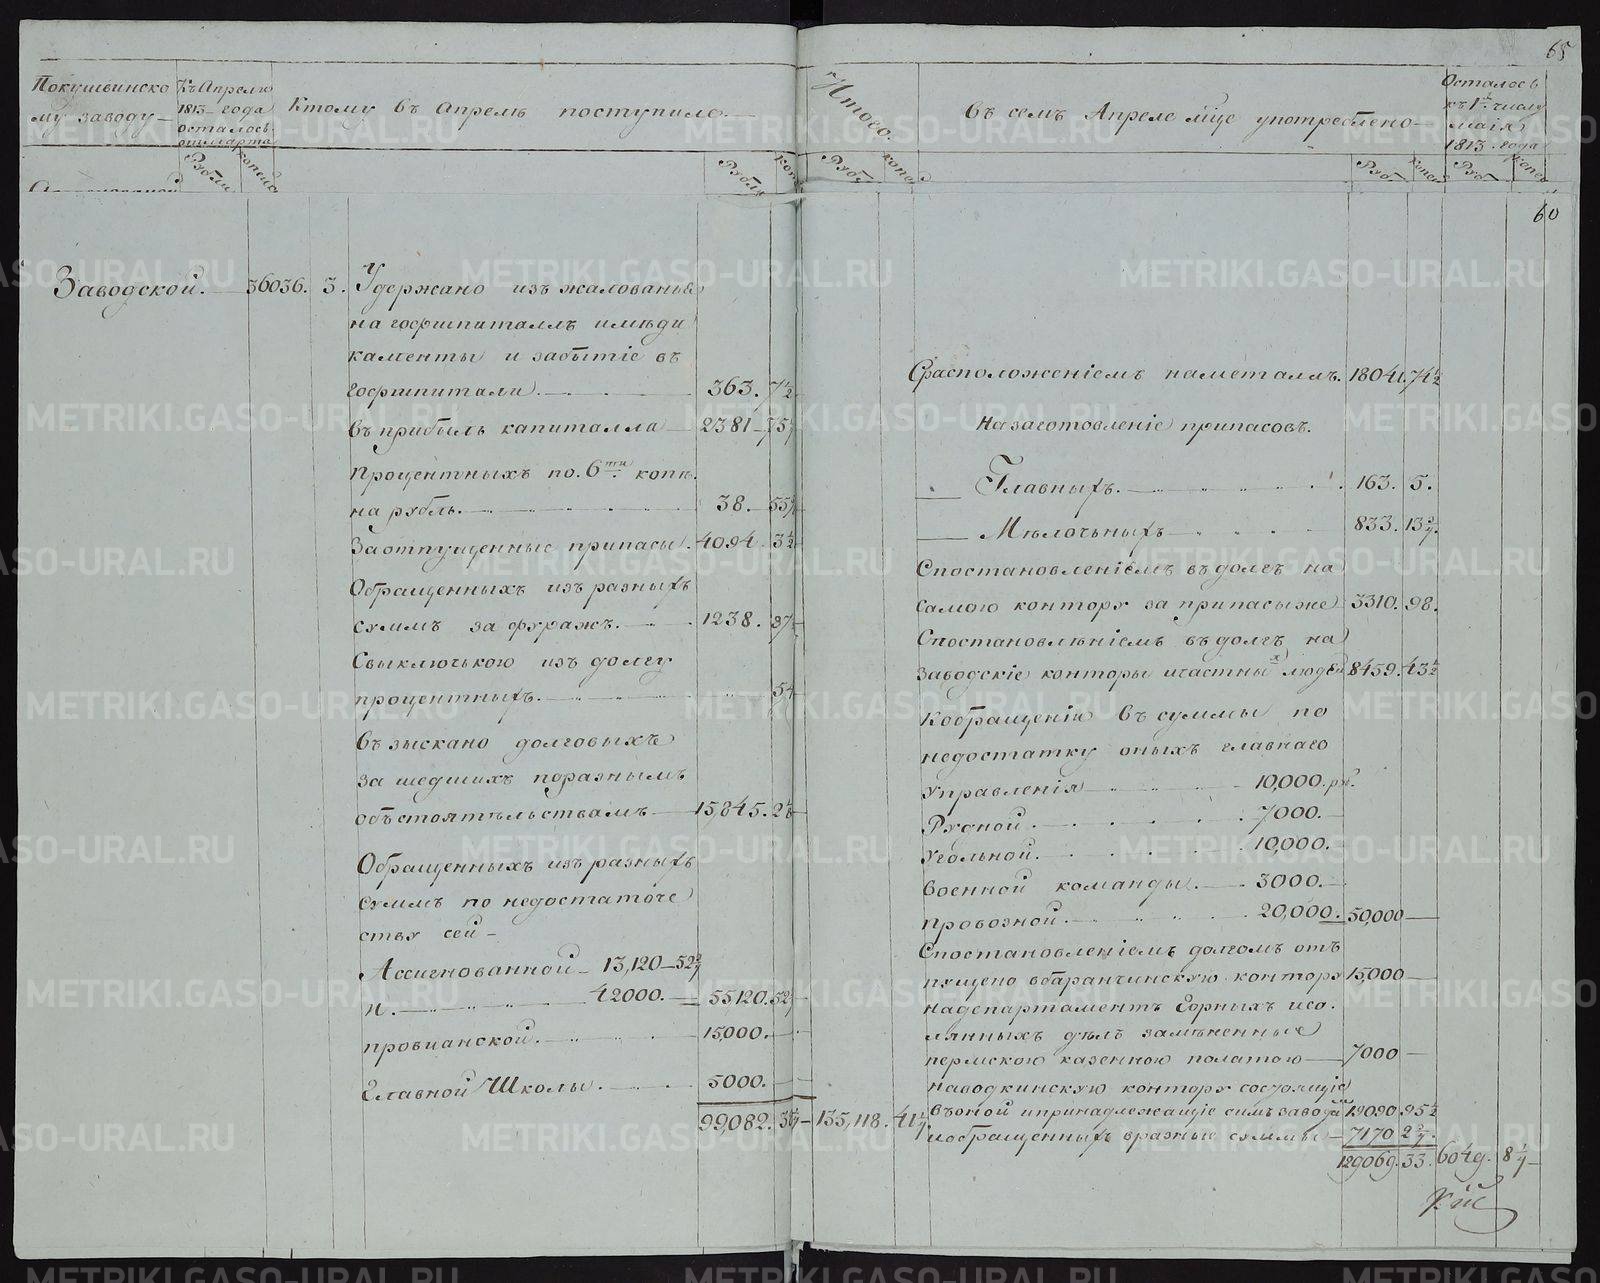 65
Покушвинско
му заводу
Къ Апрелю
1813 года
осталось
Рубли
копей
Ктому въ апрелѣ поступило
Рубли
коп
Итого.
Рубл
копей
въ семъ Апреле мце употреблено
Рубл
копей
Осталось
къ 1 числу
маія
1813 года
Рубл
копей
60
Заводской. 36036. 3.
Удержано изъ жалованья
на гофшпиталь и мѣди
каменты и забытіе въ
гофшпитали. 363. 7½
въ прибыль капиталла 2381 75
Процентныхъ по. 6ти копѣ.
на рубль. 38. 55
За отпущенные припасы. 4094. 3½
Обращенныхъ изъ разныхъ
суммъ за фуражъ. 1238. 37
Свыключькою изъ долгу
процентныхъ. 54
Взыскано долговыхъ
зашедшихъ поразнымъ
объстоятѣльствамъ 15,845. 2
Обращенныхъ изъ разныхъ
суммъ по недостаточе
ству сей
Ассигнованной 13,120 52
и. 42000. 55120. 52
провианской. 15,000.
Главной Школы. 5000.
99,082. 135,118. 41
Срасположеніемъ наметалъ. 18041. 74½
На заготовленіе припасовъ.
Главныхъ. 163. 5.
Мѣлочныхъ 833. 13
Спостановленіемъ въ долгъ на
самою контору за припасы же 3310. 98.
Спостановлѣніемъ въ долгъ на
заводскіе конторы и частных людей 8459. 43½
Кобращенію въ суммы по
недостатку оныхъ главнаго
управленія 10,000. ру.
Рудной. 7000.
угольной. 10,000.
военной команды. 3000.
провозной. 20,000. 50,000
Спостановленіемъ долгомъ отъ
пущено в баранчинскую контору 15,000
на департаментъ Горныхъ и со
лянныхъ дѣлъ замѣненные
пермскою казенною полатою 7000
на водкинскую контору состоящіе
въ оной и принадлежащіе симъ заводам 19090 95½
и обращенныхъ в разные суммы 7170 2
129069. 33. 6049. 8
METRIKI.GASO-URAL.RU